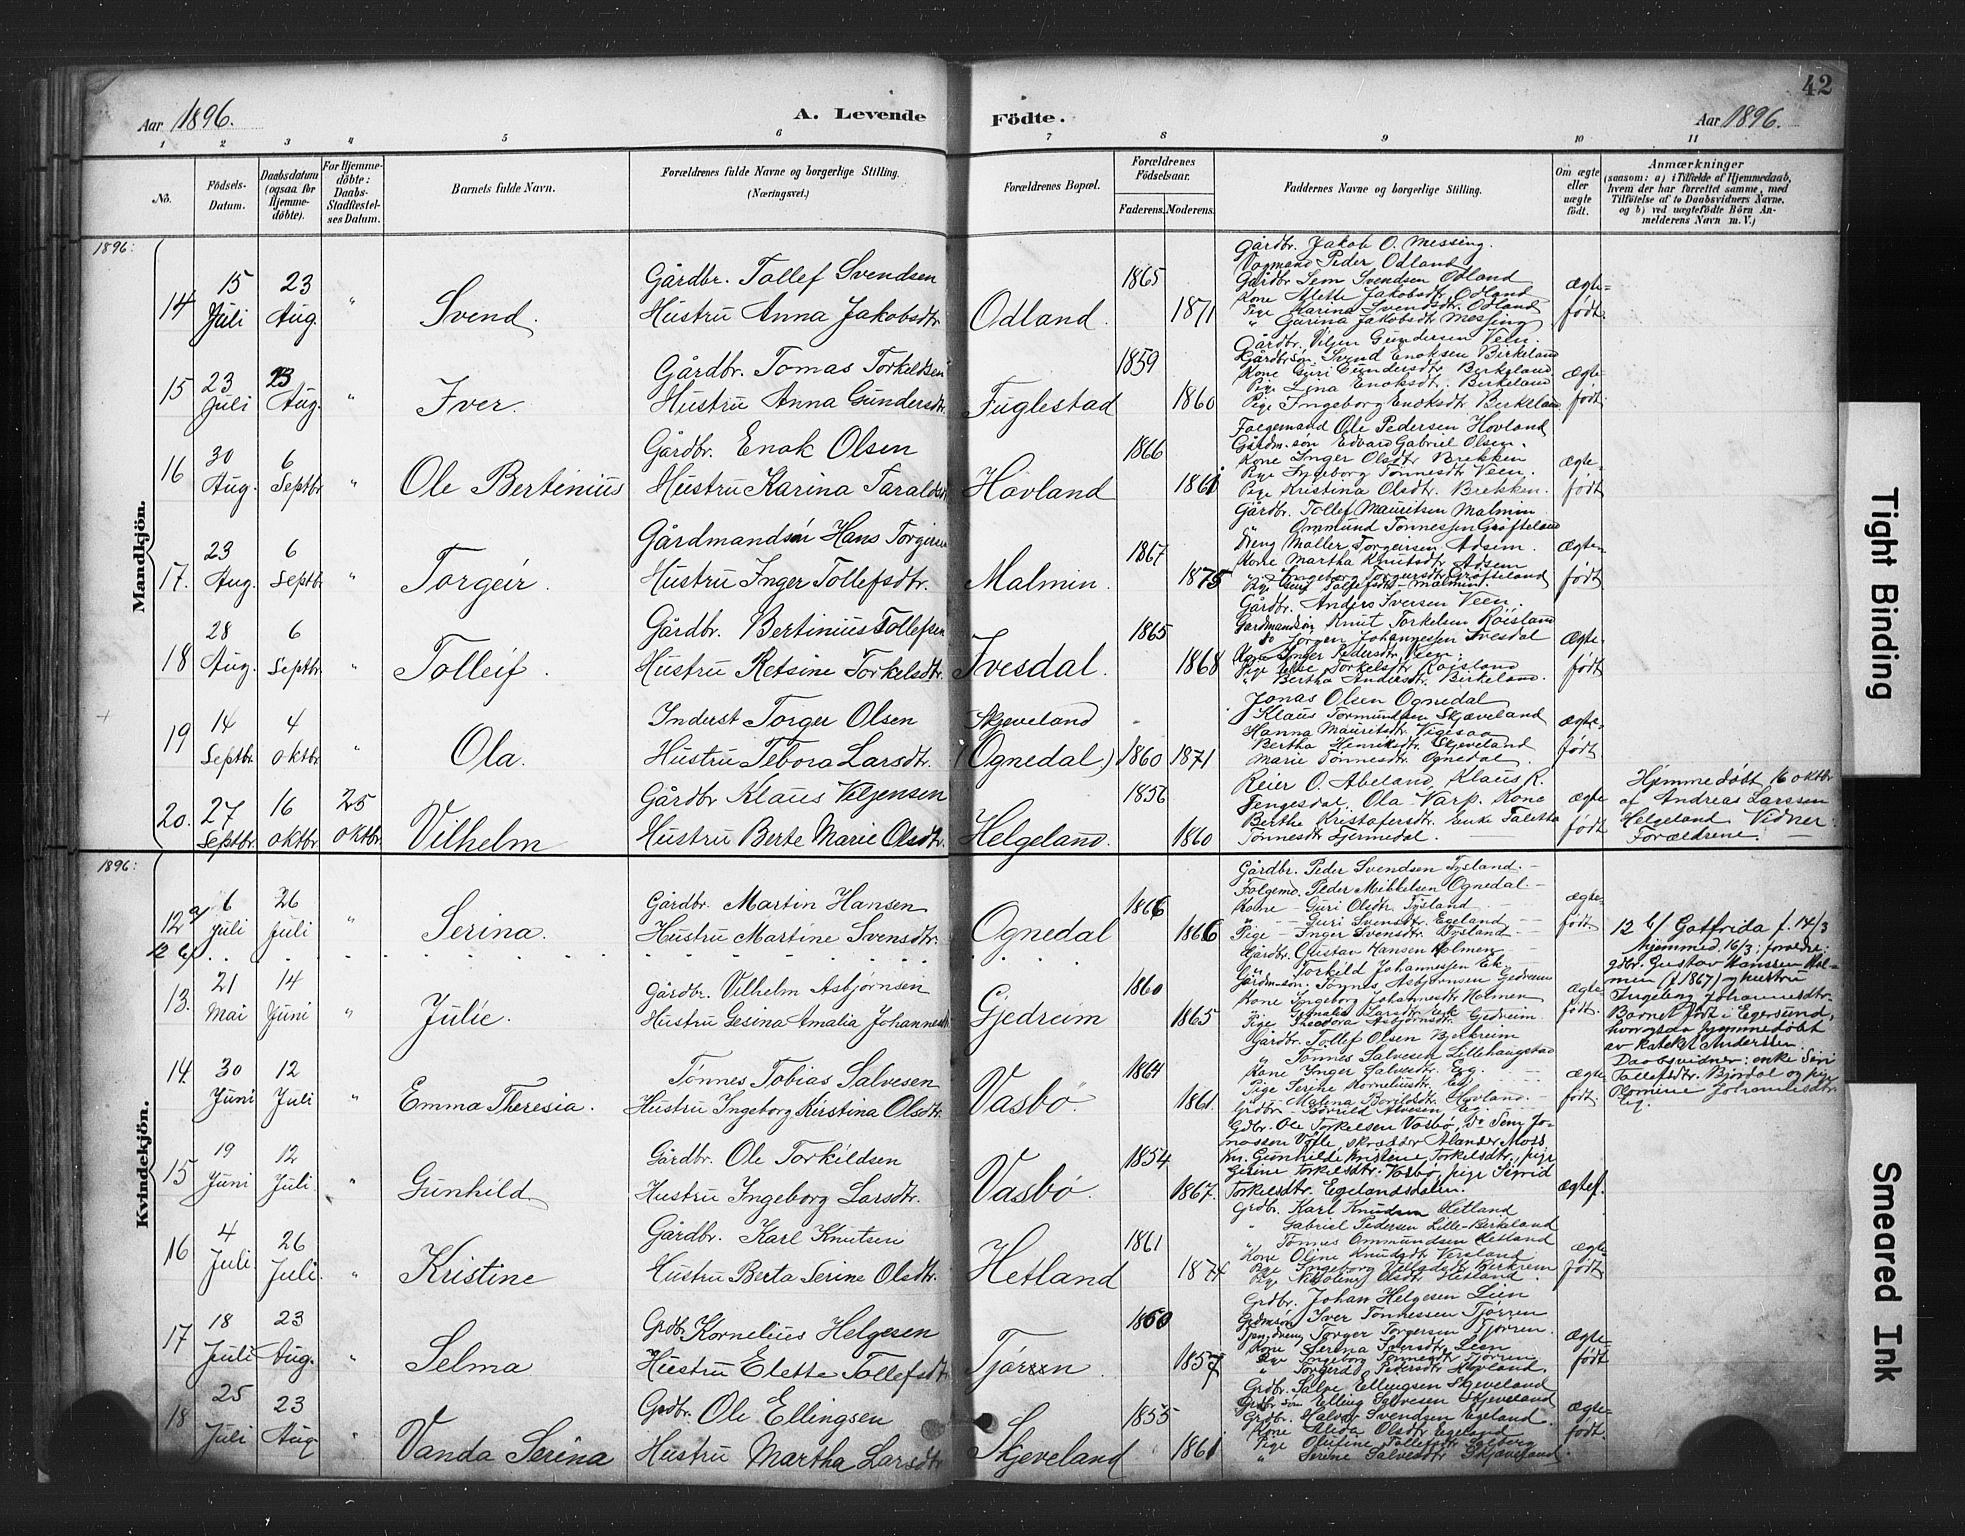 42
Aar 1896. A. Levende Födte. Aar 1896.
1 2 3 4 5 6 7 8 9 10 11
No. Födsels-Datum. Daabsdatum (ogsaa for Hjemmedöbte). For Hjemmedöbte: Daabs-Stadfestelses Datum. Barnets fulde Navn. Forældrenes fulde Navne og borgerlige Stilling. (Næringsvei.) Forældrenes Bopæl. Forældrenes Födselsaar. Faderens. Moderens. Faddernes Navne og borgerlige Stilling. Om ægte eller uægte födt. Anmærkninger (saasom: a) i Tilfælde af Hjemmedaab, hvem der har forrettet samme, med Tilföielse af to Daabsvidners Navne, og b) ved uægtefödte Börn Anmelderens Navn m. V.)
1896:
Mandkjön.
14 15 Juli 23 Aug. " Svend. Gårdbr. Tollef Svendsen
Hustru Anna Jakobsdtr Odland. 1865 1871
Gårdbr. Jakob O. Messing.
Peder Odland
Gårdbr Sem Svendsen Odland
Kone Alette Jakobsdtr. Odland
Pige Karina Svendsdtr. Odland
" Gurina Jakobsdtr Messing
ægte-
født.
15 23 Juli 23 Aug. " Iver. Gårdbr. Tomas Torkeldsen
Hustru Anna Gundersdtr Fuglestad 1859 1860
Gårdbr. Viljen Gundersen Veen.
Gårdbrsøn Svend Enoksen Birkeland
Kone Guri Gundersdtr Birkeland
Pige Lina Enoksdtr. Birkeland
Pige Ingeborg Enoksdtr Birkeland
ægte-
født.
16 30 Aug. 6 Septbr " Ole Bertinius Gårdbr. Enok Olsen
Hustru Karina Taraldsdtr Hovland 1866 1861
Folgemand Ole Pedersen Hovland
Gårdm.søn Edvard Gabriel Olsen.
Kone Inger Olsdtr Brekken
Pige Ingeborg Tønnesdtr Veen.
Pige Kristina Olsdtr. Brekken.
ægte-
født
17. 23 Aug. 6 Septbr " Torgeir. Gårdmandsøn Hans Torgirsen
Hustru Inger Tollefsdtr. Malmin. 1867 1875
Gårdbr. Tollef Mauritsen Malmin
" Ommund Tønnessen Grøfteland
Dreng Maller Torgeirsen Adsem.
Kone Martha Knutsdtr Adsem
" Ingeborg Torgersdtr Grøfteland
Pige Guri Tollefsdtr Malmin.
ægte-
født.
18 28 Aug. 6 Septbr " Tolleif. Gårdbr. Bertinius Tollefsen
Hustru Retsine Torkelsdtr. Ivesdal. 1865 1868
Gårdbr. Anders Iversen Veen.
Gårdmandsøn Knut Torkelsen Røisland
do Jørgen Johannessen Ivesdal
Kone Inger Pedersdtr Veen.
Pige Else Torkelsdtr Røisland
" Bertha Andersdtr. Birkeland.
ægte-
født.
19 14 Septbr. 4 oktbr " Ola. Inderst Torger Olsen
Hustru Tebora Larsdtr. Skjeveland
(Ognedal) 1860 1871
Jonas Olsen Ognedal
Klaus Tormundsen Skjæveland
Hanna Mauritsdtr. Vigesaa
Bertha Henriksdtr. Skjeveland
Marie Tønnesdtr. Ognedal.
ægte-
født.
20. 27 Septbr. 16 oktbr 25 oktbr. Vilhelm Gårdbr Klaus Veljensen
Hustru Berte Marie Olsdtr. Helgeland. 1856 1860
Reier O. Abeland, Klaus R.
Tengesdal. Ola Varp. Kone
Berthe Kristofersdtr. Enke Taletha
Tønnesdtr Gjermedal.
ægte
født
Hjemmedøbt 16 oktbr
af Andreas Larssen
Helgeland. Vidner:
Forældrene.
1896:
Kvindekjön.
12 a/ 6 Juli 26 Juli " Serina. Gårdbr. Martin Hansen
Hustru Martine Svensdtr. Ognedal 1866 1866
Gårdbr. Peder Svendsen Tysland.
Folgemd. Peder Mikkelsen Ognedal.
Kone Guri Olsdtr. Tysland
" Guri Svensdtr. Egeland
Pige Inger Svensdtr. Tysland.
ægte-
født.
12 b/
12 b/ Gotfrida f. 14/3
hjemmed. 16/3; foreldre:
gdbr. Gustav Hanssen Hol-
men (f. 1867) og hustru
Ingeborg Johannesdtr.
Barnet født i Egersund,
hvorogsaa hjemmedøbt
av kateket Anderssen.
Daabsvidner: enke Siri
Tollefsdtr. Bjordal og pige
Johannesdtr.
Eg.
13. 21 Mai 14 Juni " Julie. Gårdbr. Vilhelm Asbjørnsen
Hustru Gesina Amalia Johannesdtr Gjedreim 1860 1865
Gårdbr. Gustav Hansen Holmen
" Torkild Johannessen Ek.
Gårdm.søn. Tønnes Asbjørnsen Gedreim
Kone Ingeborg Johannesdtr Holmen
" Amalia Larsdtr Eek
Pige Theodora Asbjørnsdtr. Gjedreim.
ægte-
født.
14. 30 Juni 12 Juli " Emma Theresia. Tønnes Tobias Salvesen
Hustru Ingeborg Kirstina Olsdtr. Vasbø. 1864 1861.
Gårdbr. Tollef Olsen Bjerkreim
" Tønnes Salvesen Lillehaugstad
Kone Inger Salvesdtr. Eeg.
Pige Serine Korneliusdtr. Eeg
" Malena Bovildsdtr. Hovland.
Grdbr. Alvesen Eeg.
ægte
født.
15 19 Juni 12 Juli " Gunhild Gårdbr. Ole Torkildsen
Hustru Ingeborg Larsdtr. Vasbø. 1854 1867.
Gdbr. Ole Torkelsen Vasbø, Do Sem Jo-
nassen Vølle, skrædder Alander Moss,
Kn. Gunhilde Kristene Torkilsdtr., pige
Gesine Torkilsdtr. Vasbø, pige Sigrid
Torkilsdtr. Egelandsdalen.
ægtef.
16 4 Juli 26 Juli. " Kristine Gårdbr. Karl Knutsen
Hustru Berta Serine Olsdtr. Hetland 1861 1874
Grdbr. Karl Knudsen Hetland
" Gabriel Pedersen Lille-Birkeland
" Tønnes Ommundsen Hetland
Kone Oline Knudsdtr Versland
Pige Ingeborg Birkrem
Pige Nikoline Olsdtr Hetland.
ægte-
født.
17 18 Juli 23 Aug. " Selma Grdbr. Kornelius Helgesen
Hustru Elette Tollefsdtr Tjørn 1860 1857
Grdbr. Johan Helgesen Lien
Grdmsøn Iver Tønnessen Tjørren
Tjen.dreng Torger Torgersen Tjørren.
Kone Serina Pedersdtr. Lien
Pige Ingeborg Tønnesdtr Tjørren
" Torgerd Pedersdtr. Hovland.
ægte-
født
18 25 Juli 23 Aug. " Vanda Serina Grdbr. Ole Ellingsen
Hustru Martha Larsdtr Skjeveland 1855 1861
Grdbr. Salve Ellingsen Skjeveland
Grdbr.søn Elling Salvesen Skjeveland
Grdbr. Halvor Svendsen Egeland.
Kone Alida Olsdtr Egeland
Pige Olufine Tollefsdtr
" Serene Salvesdtr Skjæveland
ægte-
født.
Tight Binding
Smeared Ink